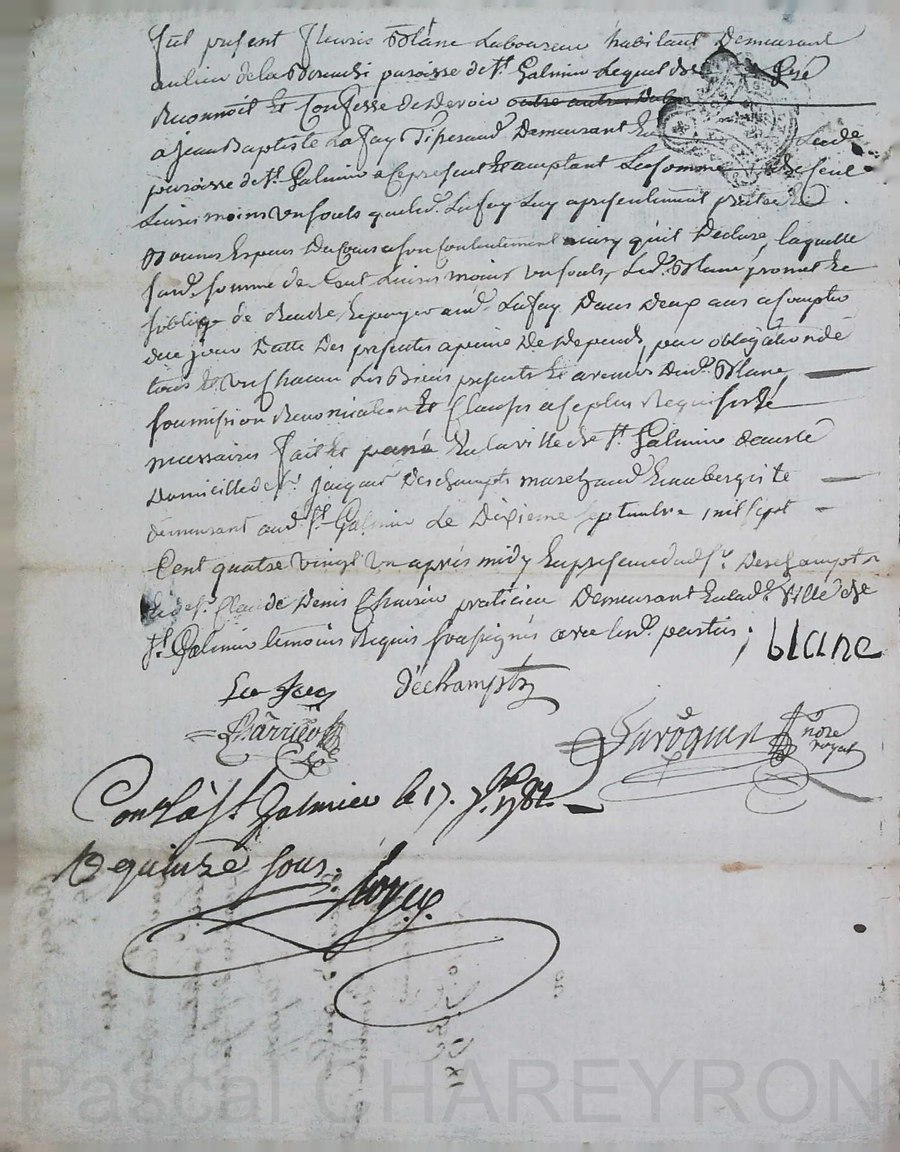 fut present Fleurie Blanc Laboureur habitant Demeurant
au lieu de la paroisse de St. Galmier Lequel de gré
Reconnoit Et Confesse De Devoir outre autre
a jean Baptiste La fay Tisserand Demeurant
paroisse de St. Galmier a ce present Et acceptant La somme de Cent
Livres moins un souls que led. Lafay Luy a presentement preté En
Bonnes Especes Du Cours a son Contentement ainsy qu'il Declare, laquelle
sud. somme de Cent Livres moins un souls, Led. Blanc promet Et
s'oblige de Rendre Et payer aud. Lafay Dans Deux ans a Compter
du jour Datte Des presentes a peine De Depends, par obligation de
tous Et un Chacun Ses Biens presents Et avenir dud. Blanc,
soumission Renonciation Et Clauses a ce plus Requises Et
necessaires fait Et passé En la ville de St. Galmier
Domicille de sr. jacques Deschampts marchand Et aubergiste
demeurant aud. St. Galmier Le Dixieme septembre mil sept
Cent quatre vingt un après midy En presence dud. sr. Deschampts
Et de sr. Claude Denis praticien Demeurant En lad. Ville de
St. Galmier temoins Requis soussignés avec les d. parties;
blanc
La fay déchampts
nore
royal
Conlé à St. Galmier le 17. 7bre 178
R quinze sous.
Pascal CHAREYRON